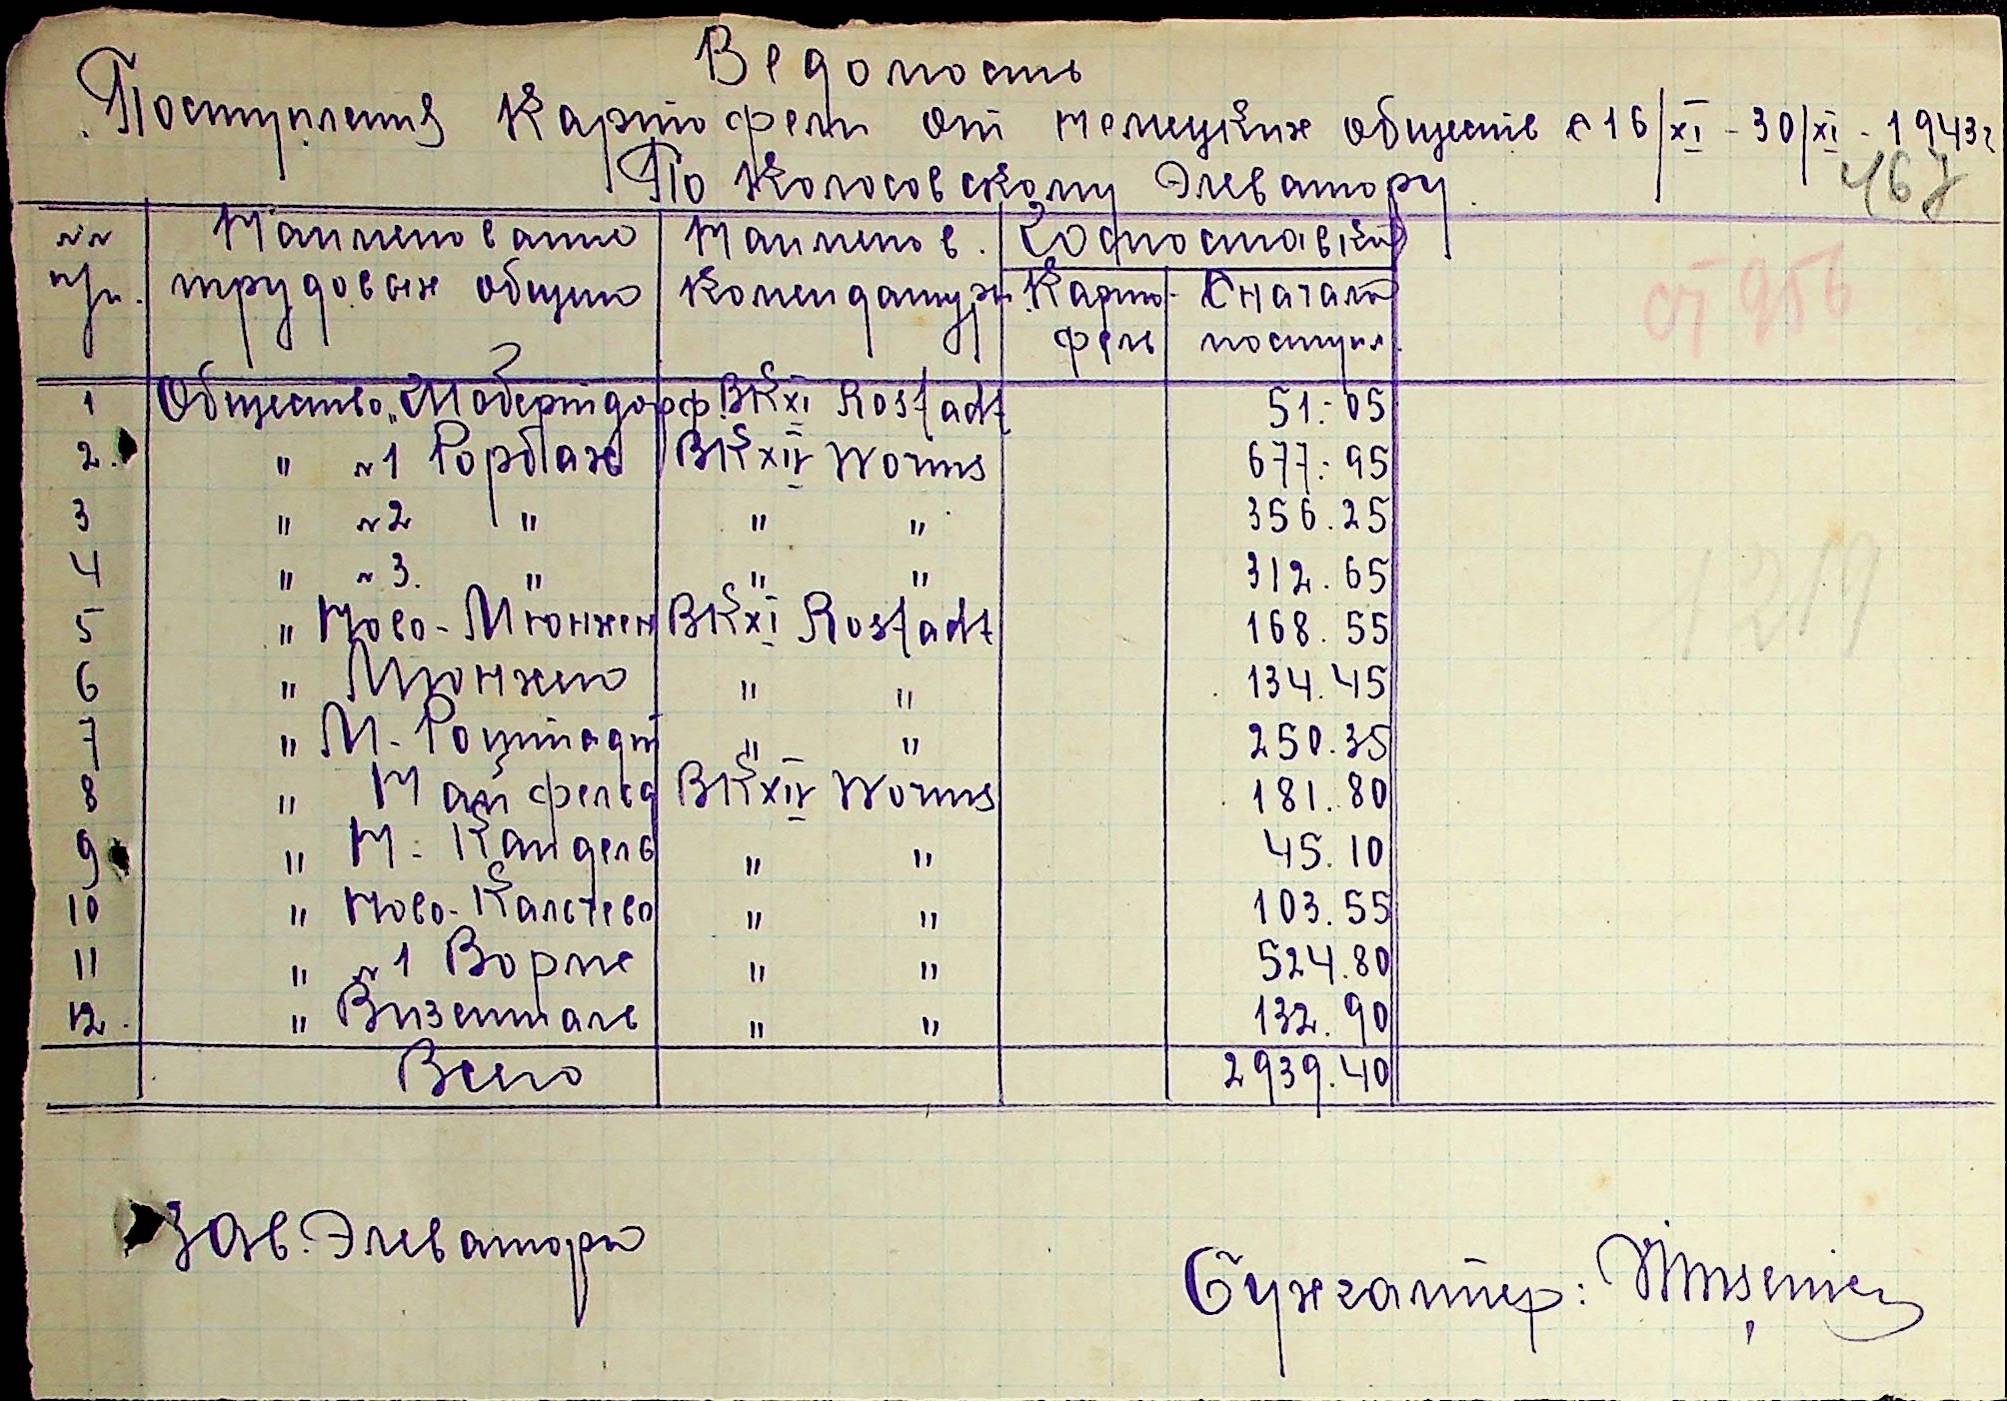 Ведомость
Поступления Картофеля от немецких обществ с 16/XI - 30/XI - 1943 г
467
По Колосовскому Элеватору
№№ Наименование Наименов. Хоспоставки
п/п. трудовых общин Комендатур Карто- Сначала
фель поступл.
от 956
1 Общество „Мобертдорф" BK XI Rostadt 51:05
2. " №1 Рорбах BK XIV Worms 677:95
3 " №2 " " " 356.25
4 " №3. " " " 312.65
5 " Ново-Мюнхен BK XI Rostadt 168.55
6 " Мюнхен " " 134.45
7 " М-Роштадт " " 250.35
8 " Найфельд BK XIV Worms 181.80
9 " Н-Кандель " " 45.10
10 " Ново-Калстево " " 103.55
11 " №1 Вормс " " 524.80
12. " Визенталь " " 132.90
Всего 2939.40
Зав. Элеватора
Бухгалтер: